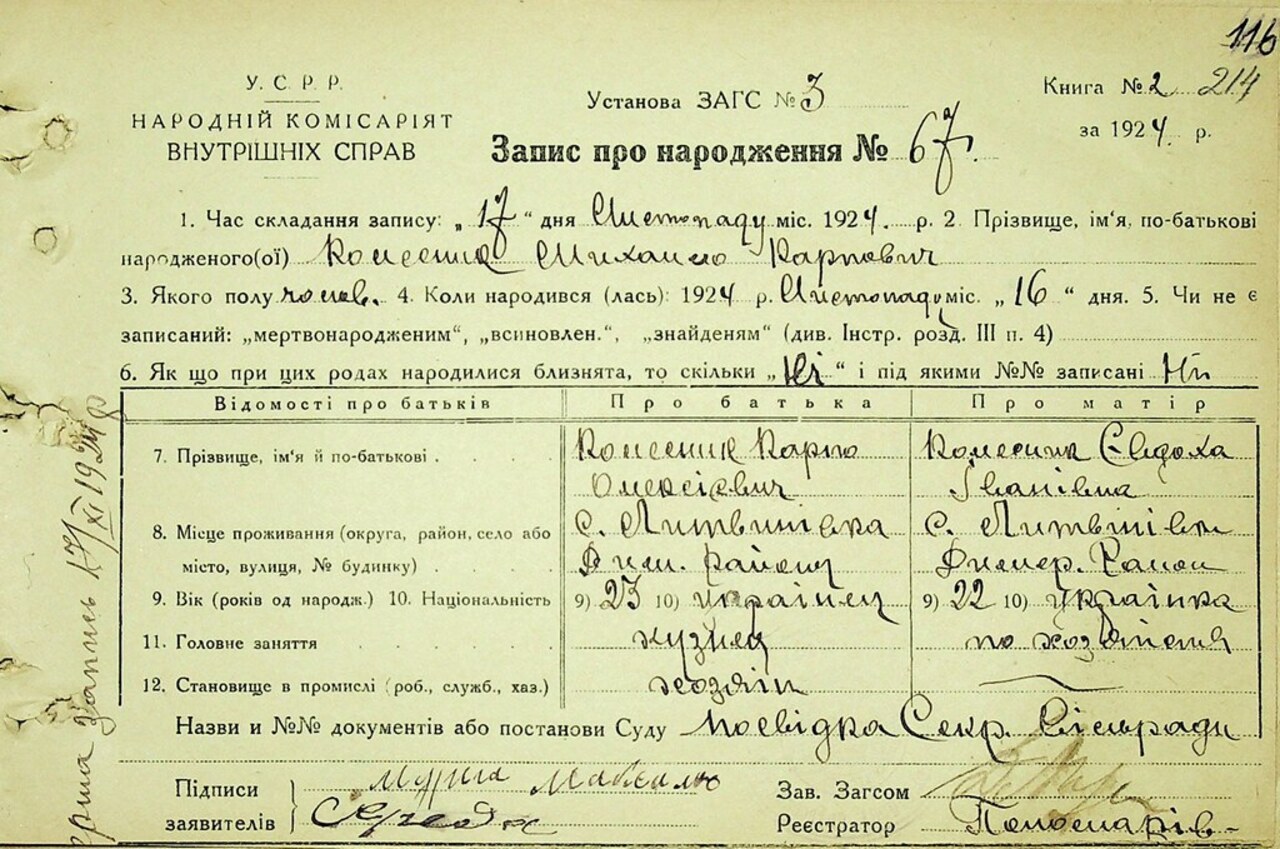 116
У. С. Р. Р.
НАРОДНІЙ КОМІСАРІЯТ
ВНУТРІШНІХ СПРАВ
Установа ЗАГС № 3
Книга № 2 214
за 1924 р.
Запис про народження № 67.
1. Час складання запису: „17“ дня Листопаду міс. 1924. р. 2. Прізвище, ім'я, по-батькові
народженого(ої) Колесник Михайло Карпович
3. Якого полу чолов. 4. Коли народився (лась): 1924 р. Листопаду міс. „16“ дня. 5. Чи не є
записаний: „мертвонародженим“, „всиновлен.“, „знайденям“ (див. Інстр. розд. III п. 4)
6. Як що при цих родах народилися близнята, то скільки „Ні“ і під якими №№ записані Ні
Відомості про батьків Про батька Про матір
7. Прізвище, ім'я й по-батькові . . . . Колесник Карпо Колесник Євдоха
Олексієвич Іванівна
8. Місце проживання (округа, район, село або с. Литвинівка с. Литвинівка
місто, вулиця, № будинку) . . . . Дим. району Димер. Район
9. Вік (років од народж.) 10. Національність 9) 23 10) українец 9) 22 10) українка
11. Головне заняття . . . . кузнец по хозяйству
12. Становище в промислі (роб., служб., хаз.) хозяін
Назви и №№ документів або постанови Суду Посвідка Секр. Сільради
Підписи
заявителів
Зав. Загсом
Реєстратор Пономарів
запись 17/XI 1924 р